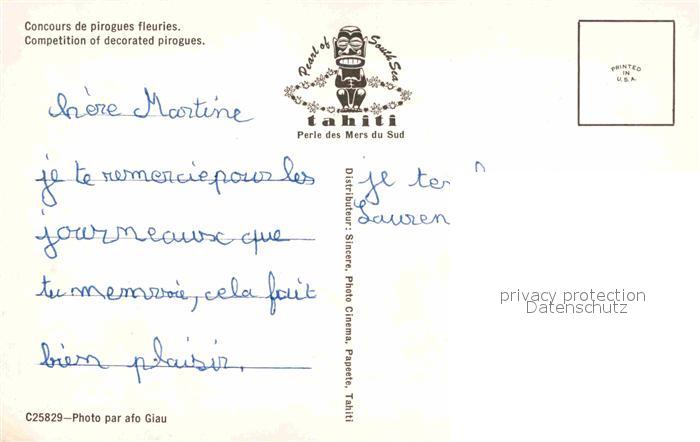 Concours de pirogues fleuries.
Competition of decorated pirogues.
Pearl of South Sea
tahiti
Perle des Mers du Sud
PRINTED
IN
U.S.A.
Martine
je te remercie pour les
journeaux que
tu memvoie, cela fait
bien plaisir.
Distributeur: Sincere, Photo Cinema, Papeete, Tahiti
je te
Lauren
privacy protection
Datenschutz
C25829—Photo par afo Giau